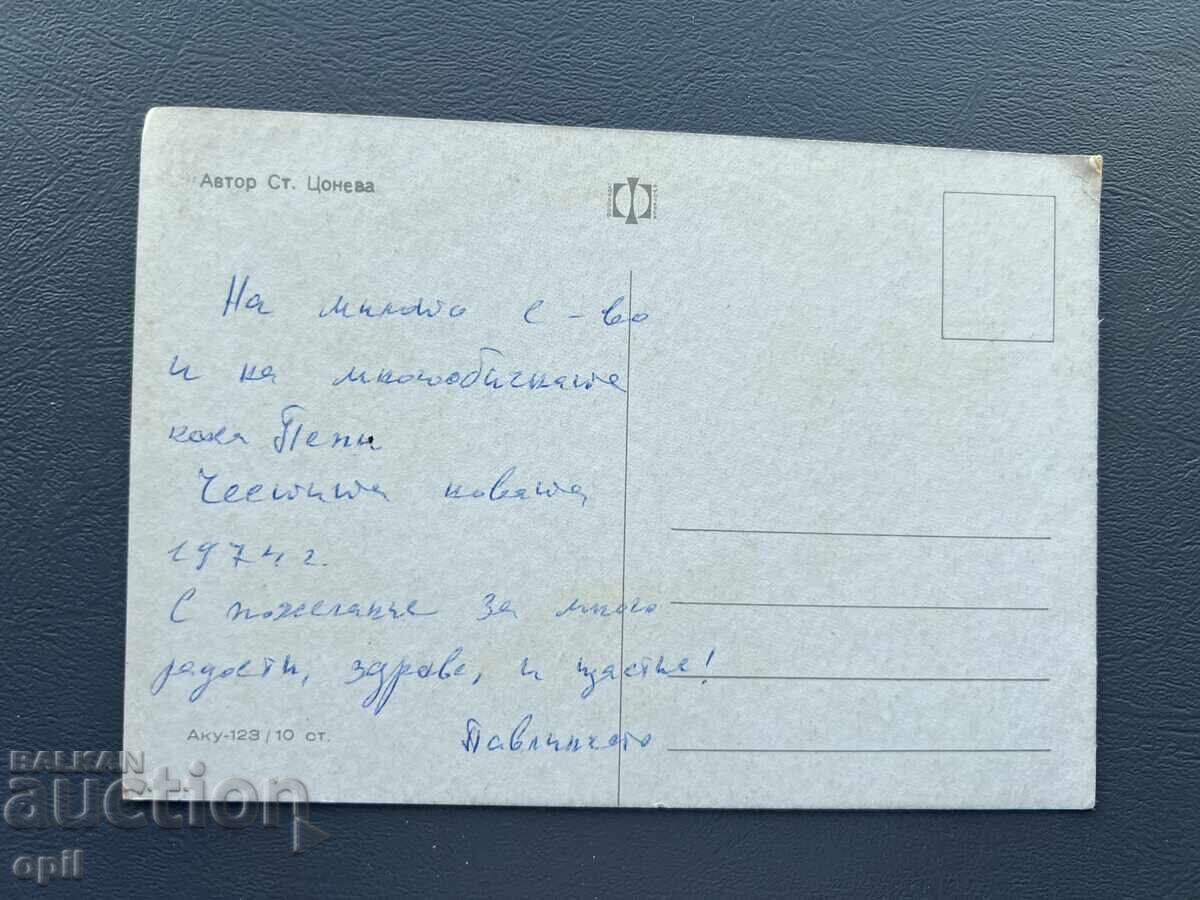 Автор Ст. Цонева
На милото с-во
и на многообичната
кака Пепи
Честита новата
1974 г.
С пожелание за много
радости, здраве, и щастие!
Павлинчето
Аку-123/10 ст.
BALKAN
auction
opil